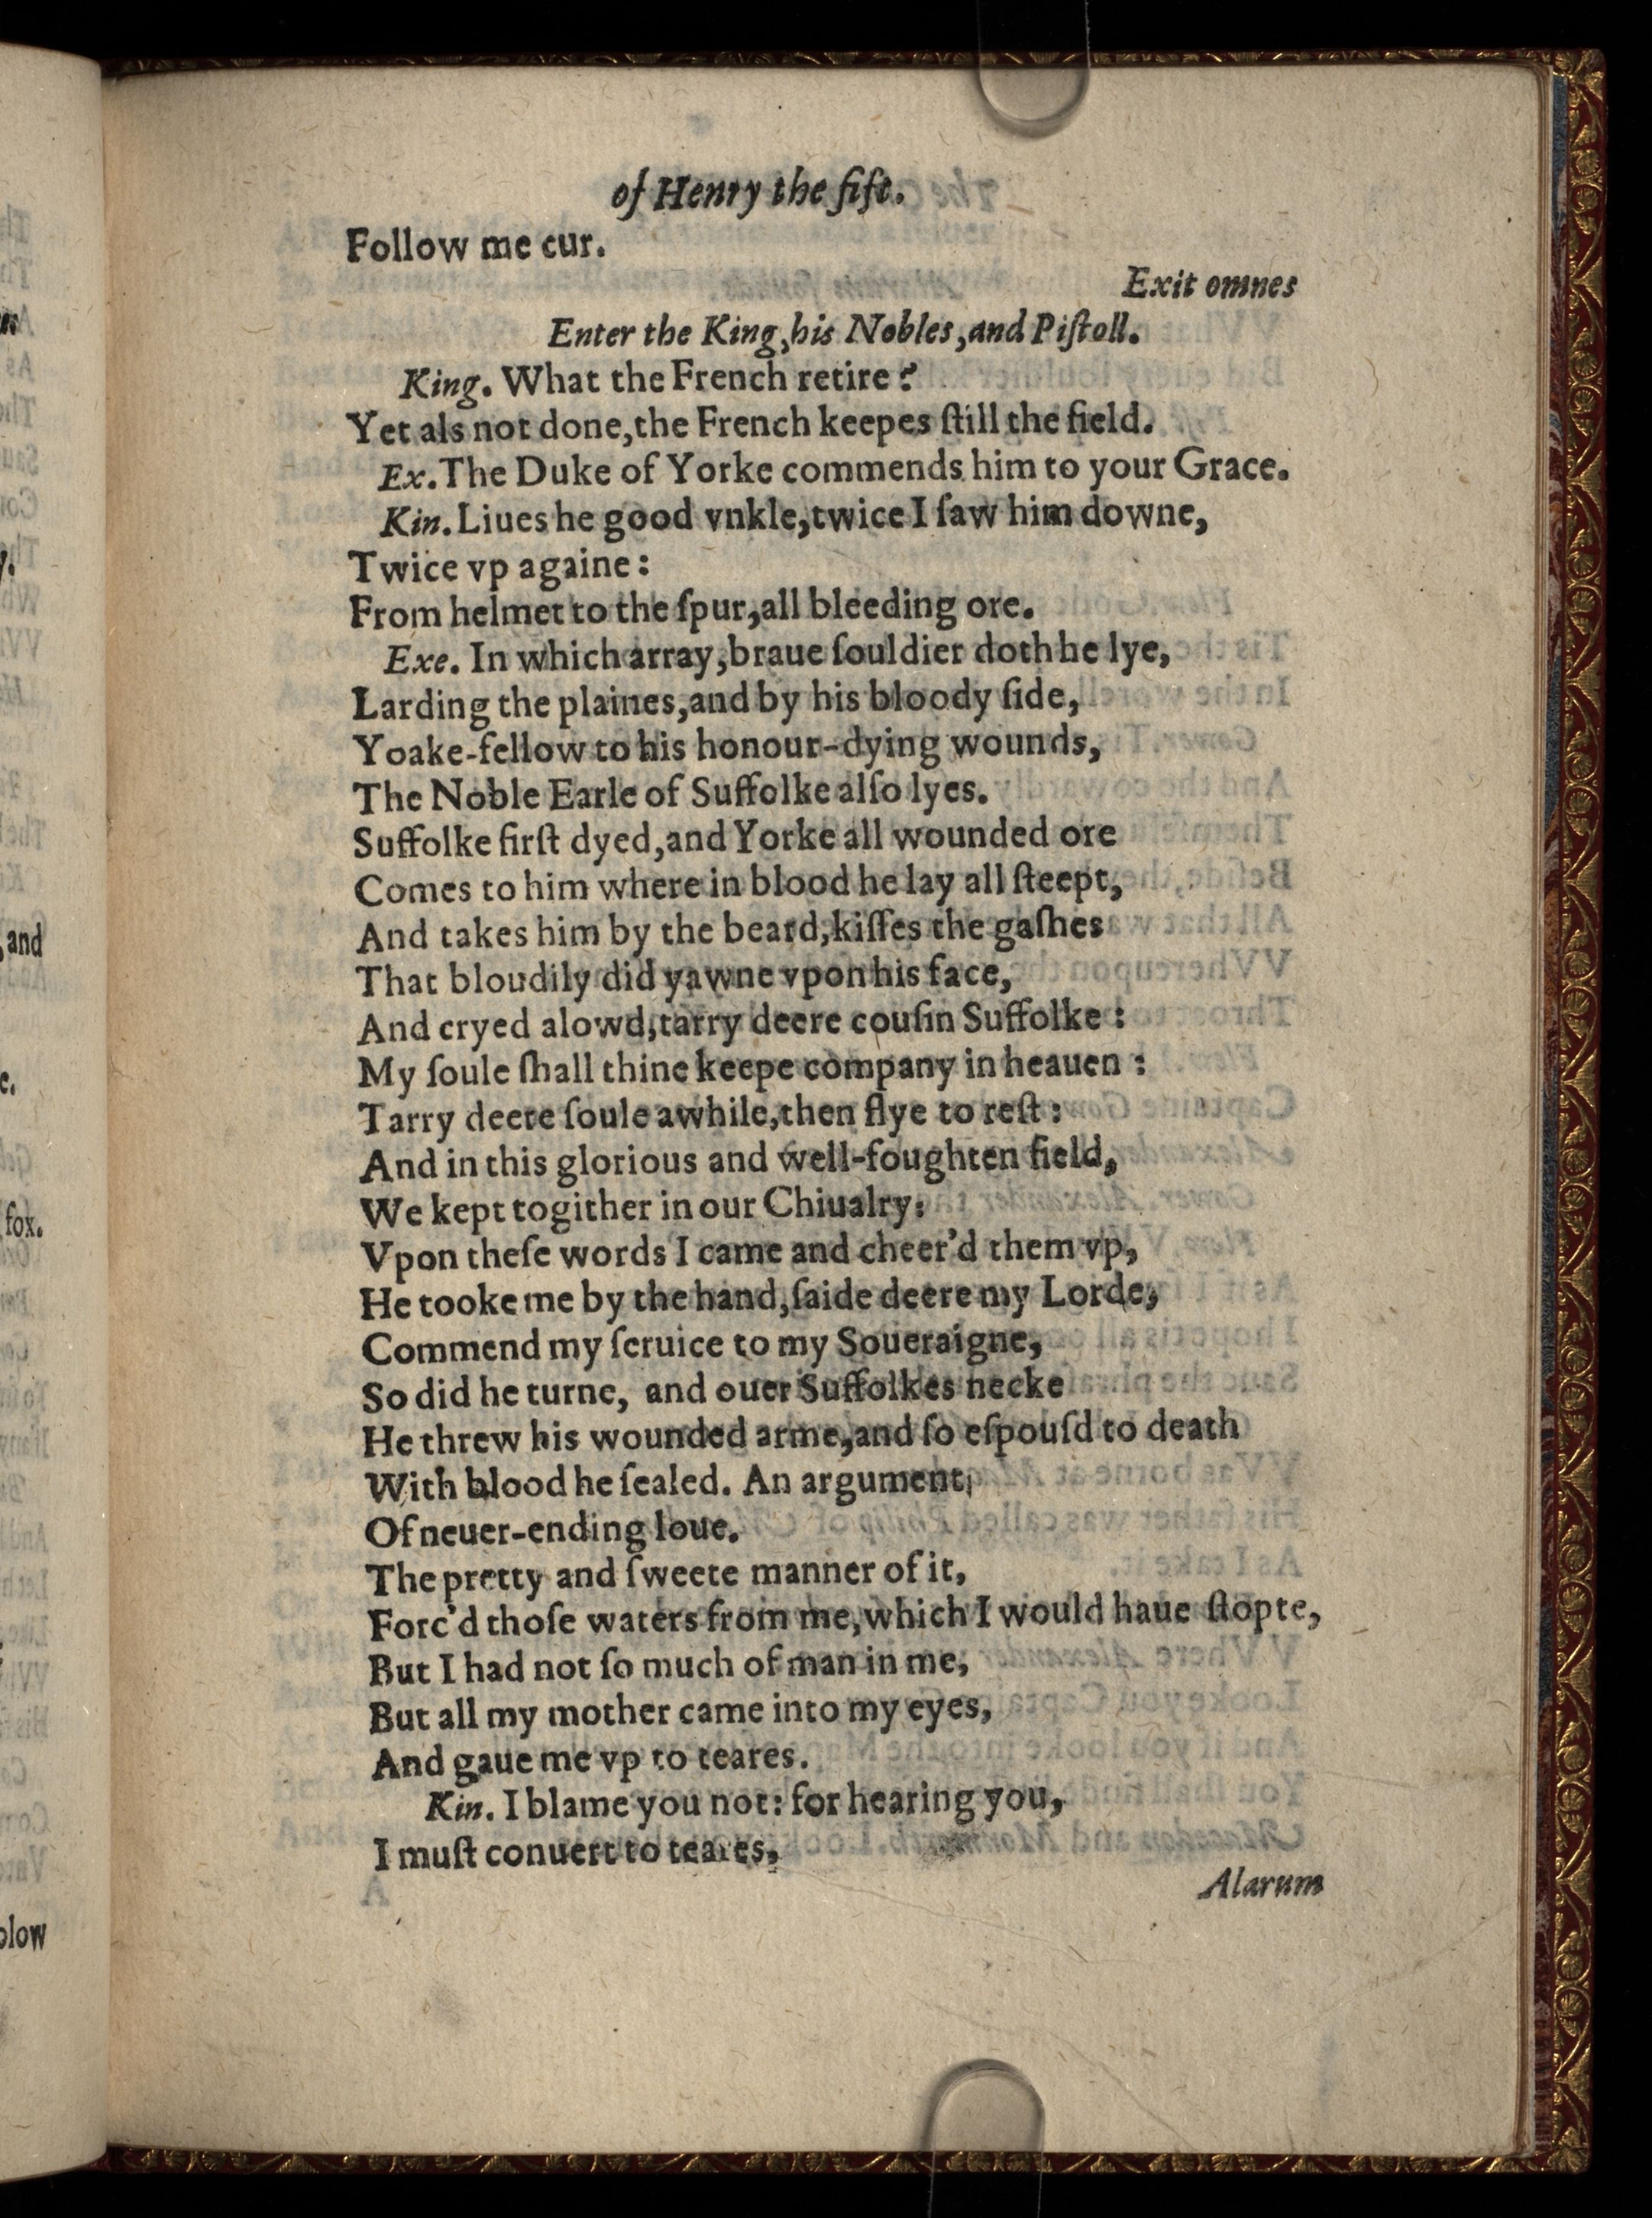 of Henry the fift.
Follow me cur.
Exit omnes
Enter the King,his Nobles,and Piſtoll.
King. What the French retire?
Yet als not done,the French keepes ſtill the field.
Ex.The Duke of Yorke commends him to your Grace.
Kin.Liues he good vnkle,twice I ſaw him downe,
Twice vp againe:
From helmet to the ſpur,all bleeding ore.
Exe. In which array,braue ſouldier doth he lye,
Larding the plaines,and by his bloody ſide,
Yoake-fellow to his honour-dying wounds,
The Noble Earle of Suffolke alſo lyes.
Suffolke firſt dyed,and Yorke all wounded ore
Comes to him where in blood he lay all ſteept,
And takes him by the beard,kiſſes the gaſhes
That bloudily did yawne vpon his face,
And cryed alowd,tarry deere couſin Suffolke:
My ſoule ſhall thine keepe company in heauen:
Tarry deere ſoule awhile,then flye to reſt:
And in this glorious and well-foughten field,
We kept togither in our Chiualry:
Vpon theſe words I came and cheer'd them vp,
He tooke me by the hand,ſaide deere my Lorde,
Commend my ſeruice to my Soueraigne,
So did he turne, and ouer Suffolkes necke
He threw his wounded arme,and ſo eſpouſd to death
With blood he ſealed. An argument
Of neuer-ending loue.
The pretty and ſweete manner of it,
Forc'd thoſe waters from me,which I would haue ſtopte,
But I had not ſo much of man in me,
But all my mother came into my eyes,
And gaue me vp to teares.
Kin. I blame you not: for hearing you,
I muſt conuert to teares,
Alarum
,and
fox.